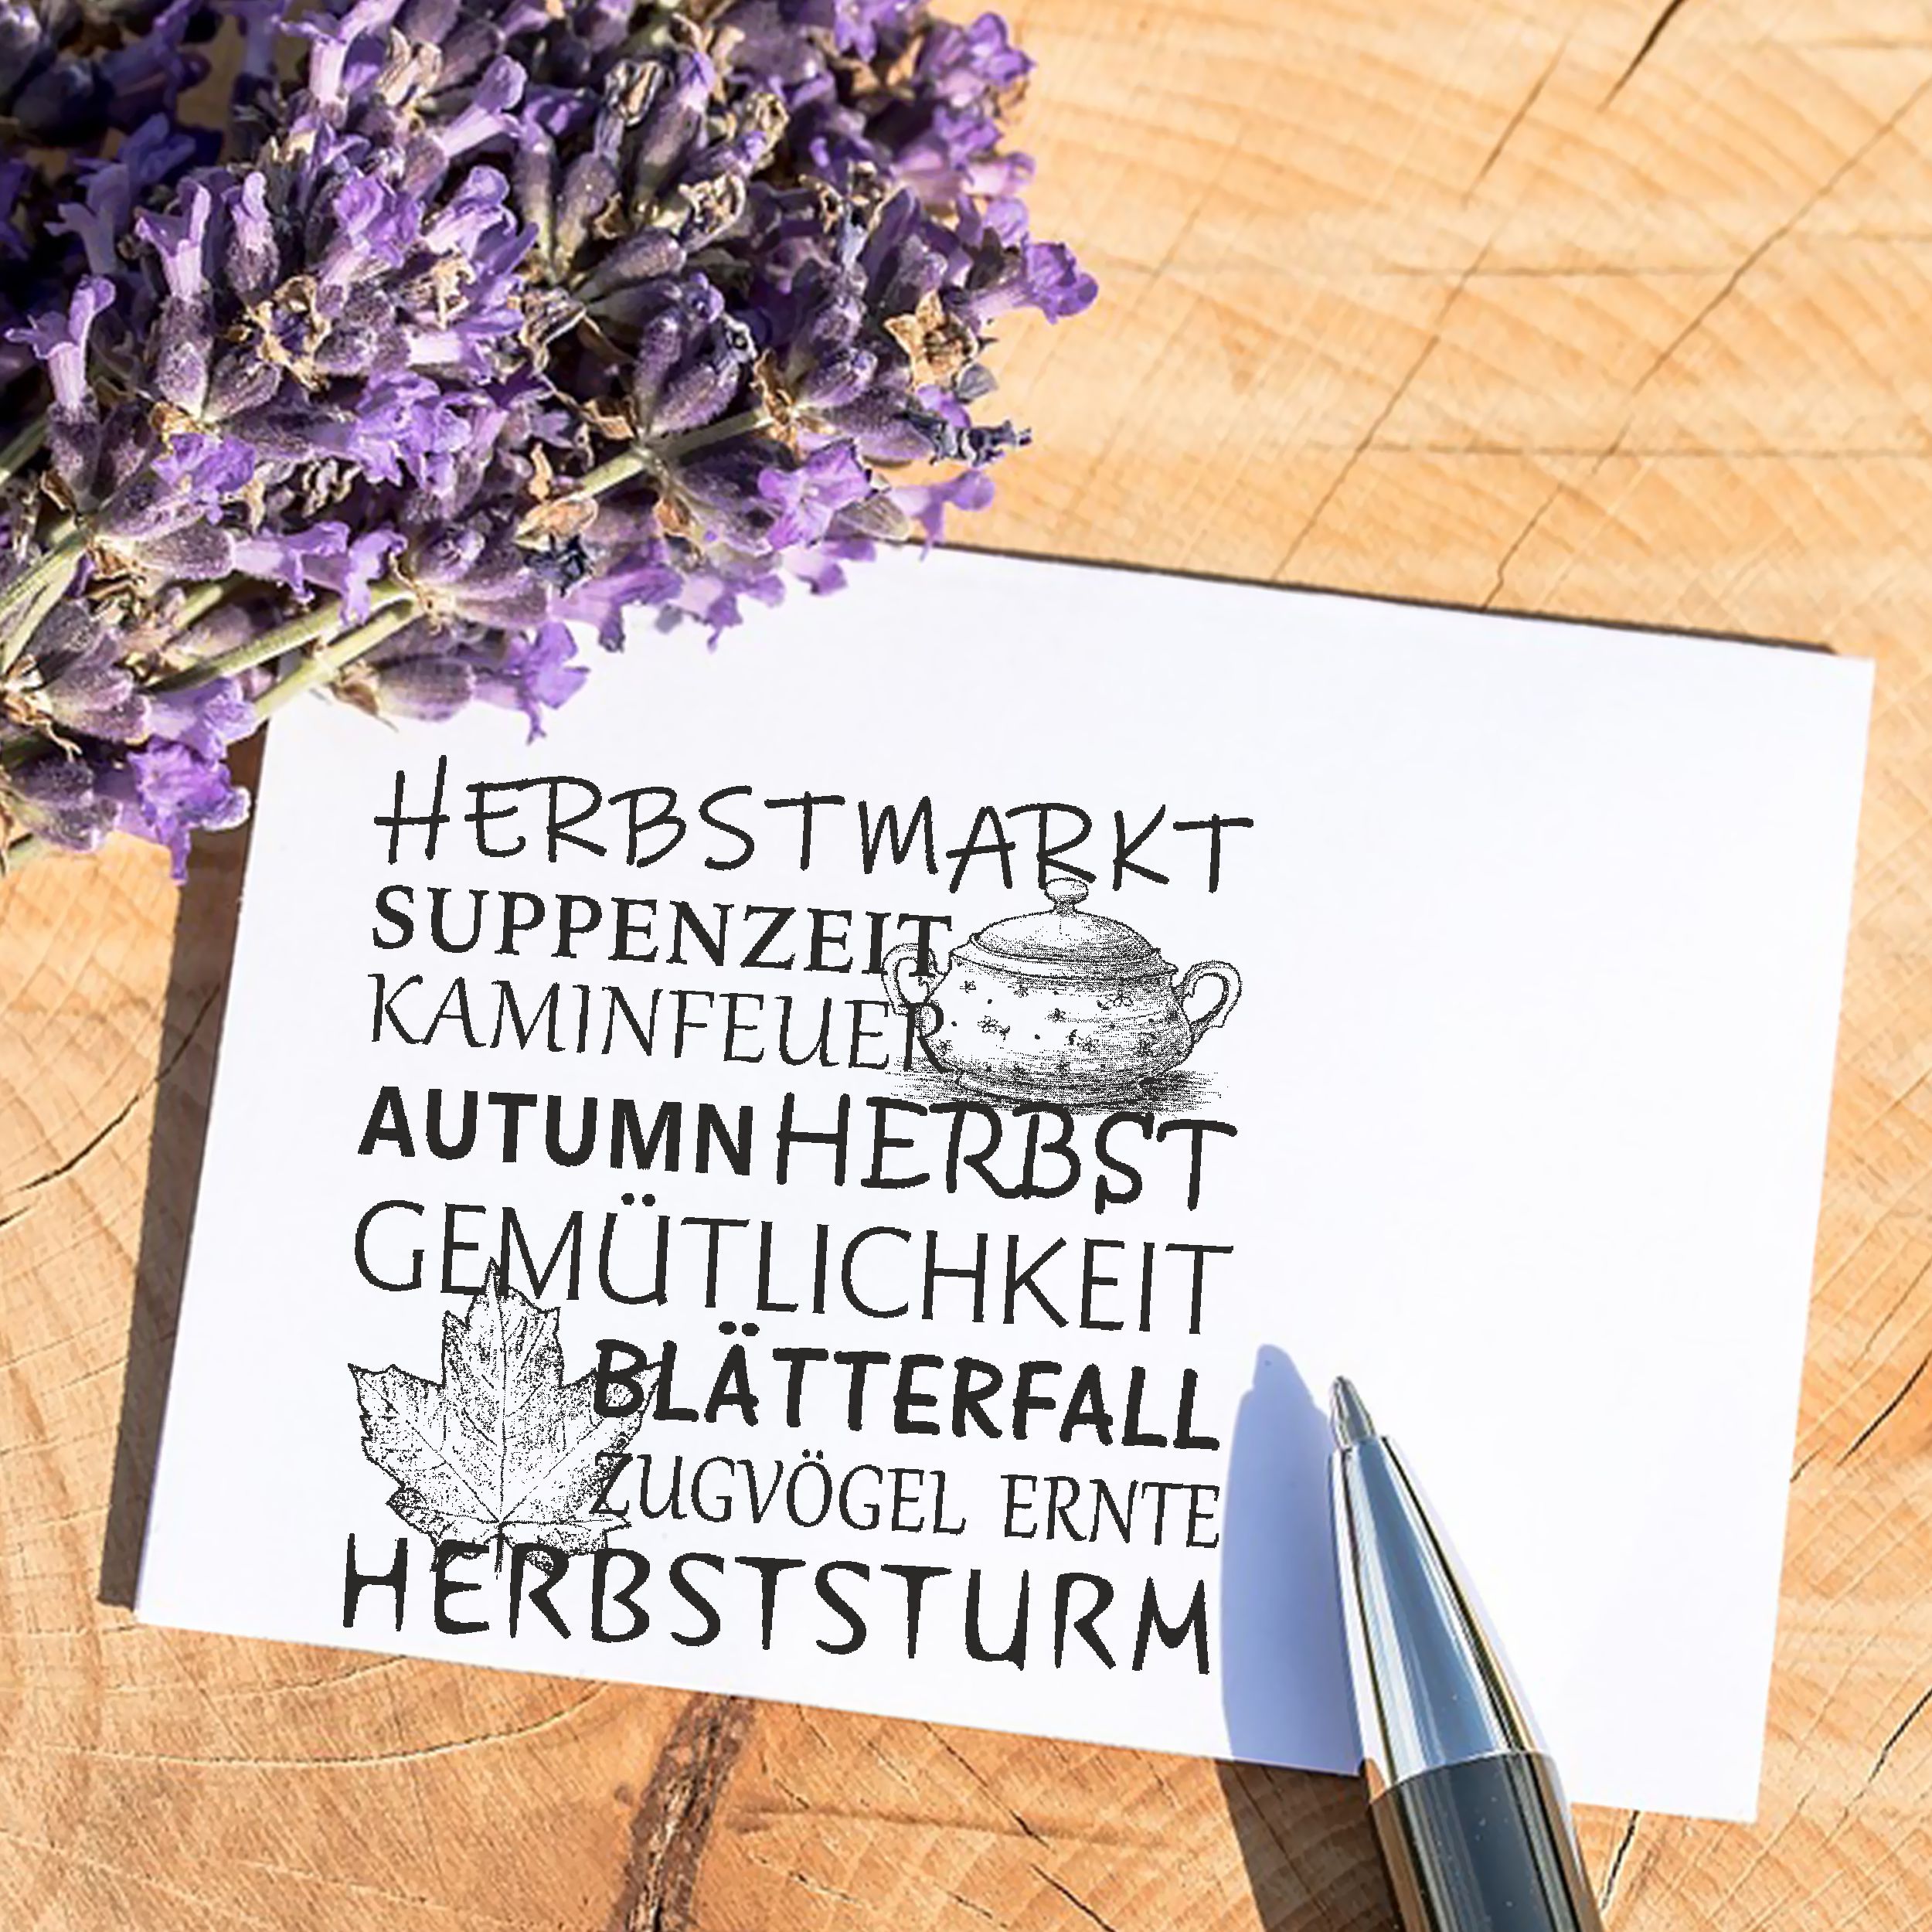 HERBSTMARKT
SUPPENZEIT
KAMINFEUER
AUTUMN HERBST
GEMÜTLICHKEIT
BLÄTTERFALL
ZUGVÖGEL ERNTE
HERBSTSTURM